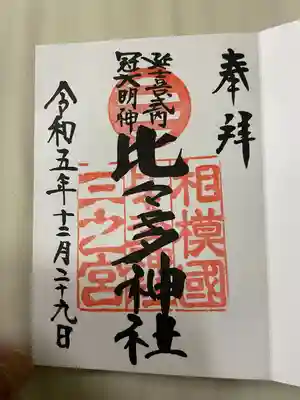 奉拝
延喜式内
冠大明神
比々多神社
相模國
三之宮
令和五年十二月二十九日